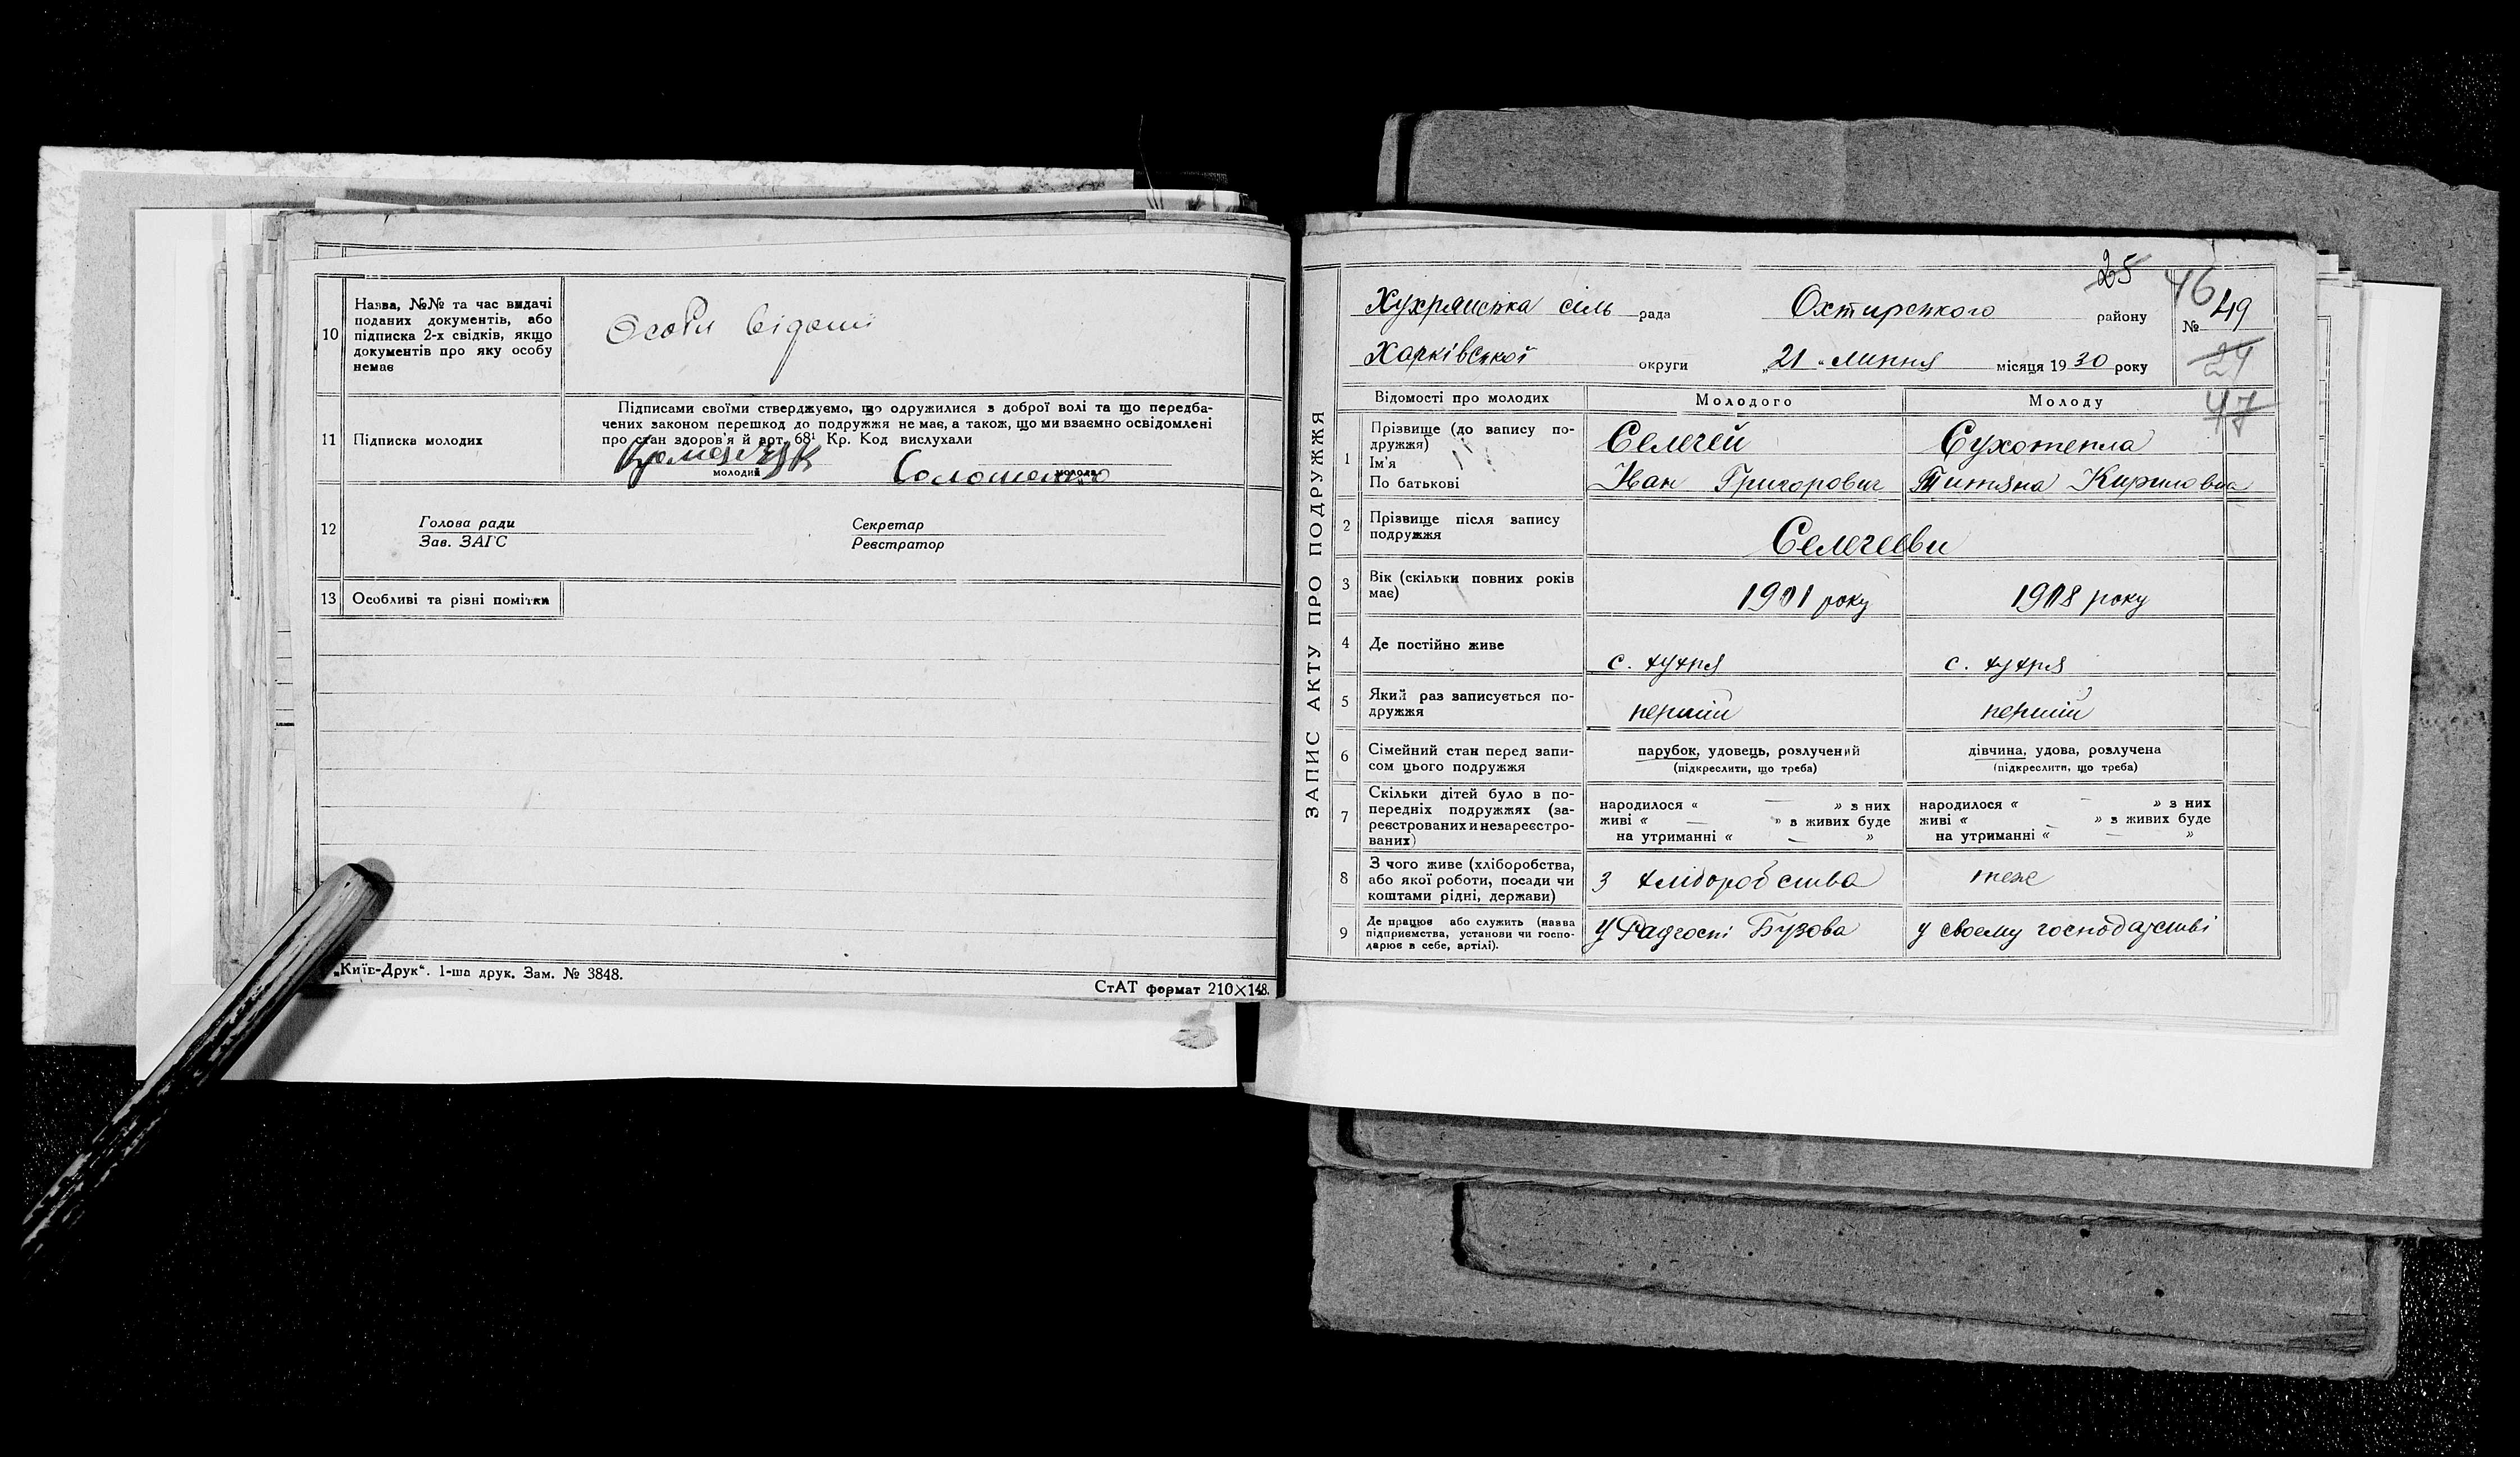 10
Назва, №№ та час видачі
поданих документів, або
підписка 2-х свідків, якщо
документів про яку особу
немає
Особи відомі
11
Підписка молодих
Підписами своїми стверджуємо, що одружилися з доброї волі та що передба-
чених законом перешкод до подружжя немає, а також, що ми взаємно освідомлені
про стан здоров'я й арт. 68¹ Кр. Код вислухали
молодий
молода
12
Голова ради
Зав. ЗАГС
Секретар
Реєстратор
13
Особливі та різні помітки
„Київ-Друк“. 1-ша друк. Зам. № 3848.
СтАТ формат 210×148.
ЗАПИС АКТУ ПРО ПОДРУЖЖЯ
25
46
Хухрянська сіль рада Охтирського району
№ 49
Харківської округи „21“ липня місяця 1930 року
24
47
Відомості про молодих
Молодого
Молоду
1
Прізвище (до запису по-
дружжя)
Ім'я
По батькові
Селегей
Іван Григорович
Сухотепла
Титяна Кириловна
2
Прізвище після запису
подружжя
Селегеєви
3
Вік (скільки повних років
має)
1901 року
1908 року
4
Де постійно живе
с. Хухря
с. Хухря
5
Який раз записується по-
дружжя
перший
перший
6
Сімейний стан перед запи-
сом цього подружжя
парубок, удовець, розлучений
(підкреслити, що треба)
дівчина, удова, розлучена
(підкреслити, що треба)
7
Скільки дітей було в по-
передніх подружжях (за-
реєстрованих и незареєстро-
ваних)
народилося « — » з них
живі « — » з живих буде
на утриманні « — »
народилося « — » з них
живі « — » з живих буде
на утриманні « — »
8
З чого живе (хліборобства,
або якої роботи, посади чи
коштами рідні, держави)
з хліборобства
теж
9
Де працює або служить (назва
підприємства, установи чи госпо-
дарює в себе, артілі).
У Радгоспі Бузова
у своєму господарстві